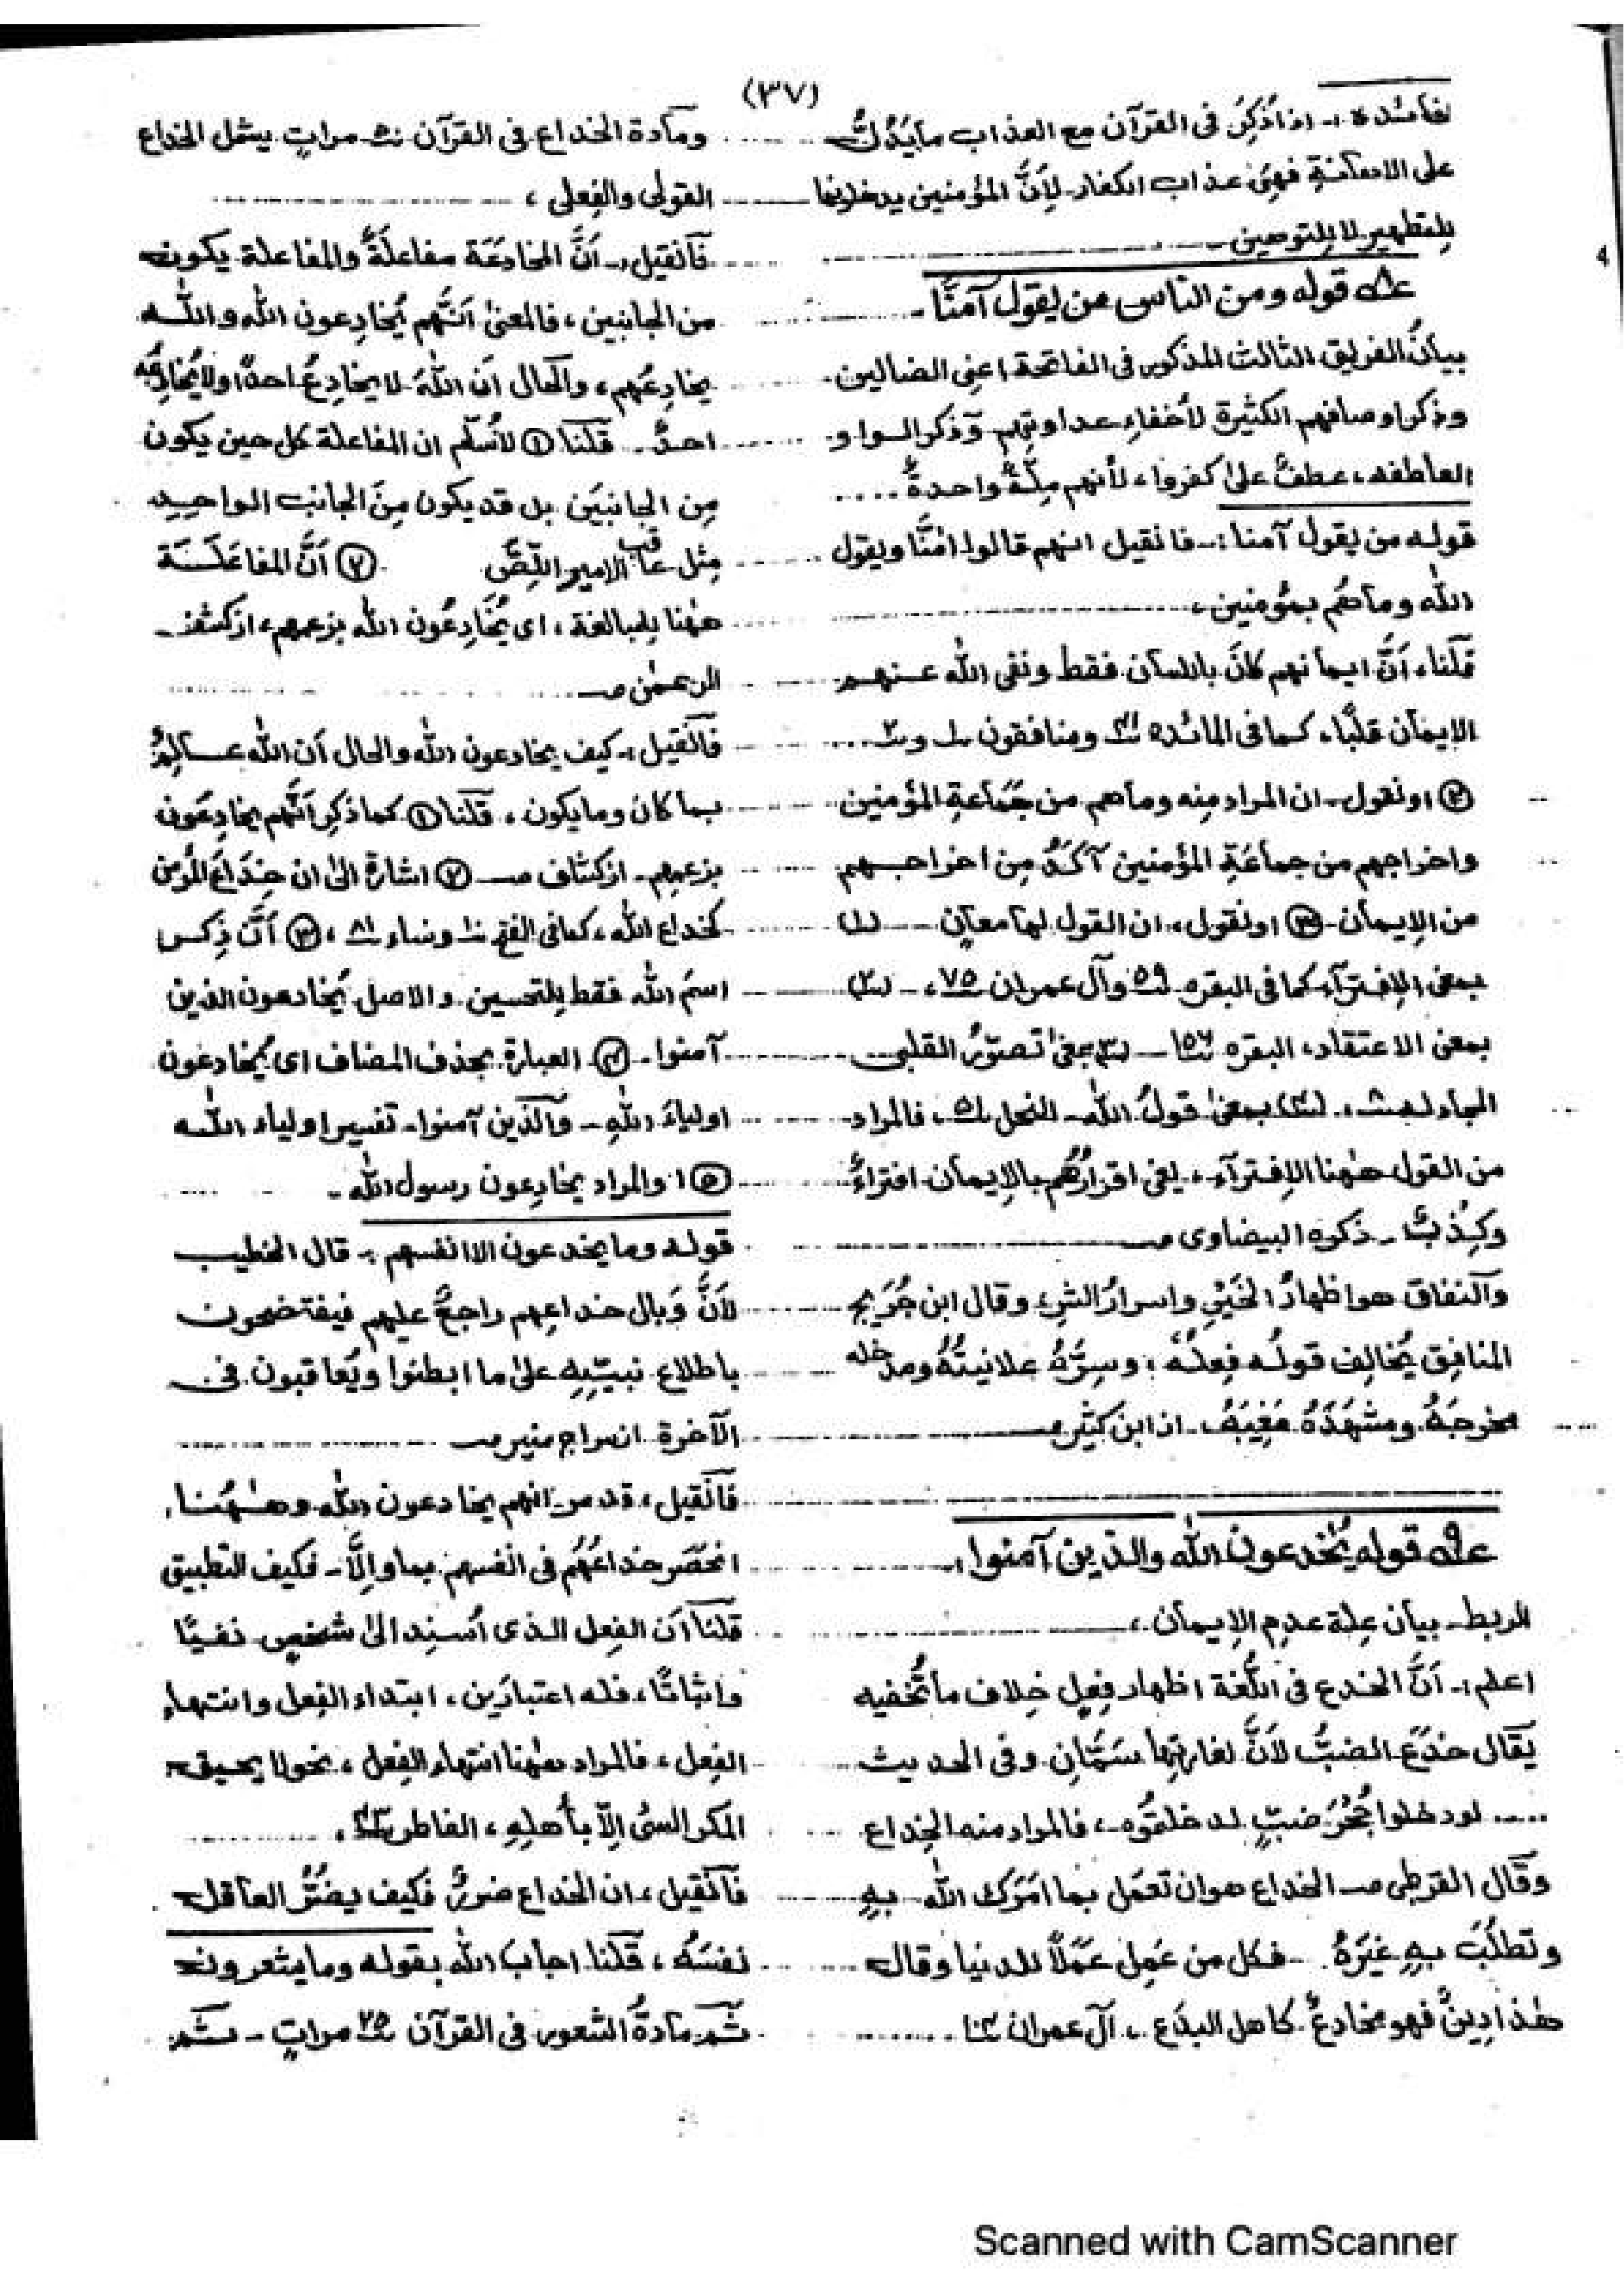 (٣٧)
فآئدة :ـ اذا ذُكِرَ فى القرآن مع العذاب مايَدُلُّ
على الاهآنةِ فهِىَ عذاب الكفار لِأنَّ المؤمنين يدخلونها
للتطهير لا للتوهين
ع٨ قوله ومن الناس من يقول آمنَّا
بيآنُ الفريق الثالث المذكور فى الفاتحة اعنِى الضالين
وذكر اوصافهم الكثيرة لأخفاءِ عداوتهم وَذكر الواو
العاطفه، عطفٌ علىٰ كفروا، لأنهم مِلّةٌ واحدةٌ ....
قوله من يقول آمنا :ـ فانقيل انهم قالوا اٰمنَّا ويقول
اللّٰه وماهُم بمؤمنين،
قلنا، اَنَّ ايمانهم كانَ باللسآن فقط ونفى اللّٰه عنهم
الإيمآن قلبًا، كما فى المائده ٤١ ومنافقون ١ و٢
② اونقول ـ ان المراد مِنه وماهم من جَمَاعةِ المؤمنين
واخراجهم من جماعَةِ المؤمنين آكَدُ مِن اخراجهم
من الإيمآن ـ ③ اونقول، ان القول لهآ معآنٍ (١)
بمعنى الإفترآء كما فى البقره ٥٩ وآل عمران ٧٥، ـ (٢)
بمعنى الاعتقاد، البقره ١٥٦ ـ (٣) بمعنىٰ تصوّرُ القلبى
المجادله ٨، (٤) بمعنىٰ قولُ اللّٰه ـ النحل ٥١، فالمراد
من القول هٰهنا الإفترآء، يعنى اقرارُهُم بالإيمآن افتراءٌ
وكِذْبٌ ـ ذكره البيضاوى صـ
وَالنفاق هو اظهارُ الخَيْرِ واسرارُ الشرِ، وقال ابن جُرَيج
المنافِق يُخالِف قولُه فِعلَهُ، وسِرُّهُ علانيتَهُ ومدخله
مخرجَهُ ومشهَدَهُ مَغِيبَهُ ـ از ابن كثير صـ
ع٩ قوله يُخٰدعون اللّٰه والذين آمنوا،
الربط ـ بيآن عِلة عدم الإيمآن،
اعلم :ـ اَنَّ الخدع فى اللُّغة اظهار فِعلٍ خِلاف ماتُخفيه
يُقال خدَعَ الضبُّ لأنَّ لغارتِها سَمَّانِ وفى الحديث
..... لو دخلوا جُحْرَ ضبٍّ لدخلتُوه، فالمراد منه الخِداع
وقال القرطبى صـ الخداع هو ان تعمَل بما امَرَك اللّٰه بِهِ
وتطلُبَ بِهِ غيَرهُ ـ فكل من عَمِل عمَلاً للدنيا وقال
هٰذا دِينٌ فهو مخادعٌ كاهل البِدَع، آل عمران
ومآدة الخداع فى القرآن مراتٍ يشمل الخداع
القولى والفِعلى،
فَانقيل ـ اَنَّ المخادَعَة مفاعلَةٌ والمفاعلة يكون
من الجانبين، فالمعنىٰ انَّهم يُخادِعون اللّٰه واللّٰه
يخادِعُهم، والحال ان اللّٰهَ لا يخادِعُ احدًا ولا يُخادِعُه
احدٌ ـ قلنا ① لانُسلّم ان المفاعلة كل حين يكون
مِن الجانبَين بل قد يكون مِنَ الجانب الواحِد
مِثل عاقب الاميرُ اللِّصَّ ② اَنَّ المفاعَلَةَ
هٰهنا للمبالغة، اى يُخَادِعُون اللّٰه بزعمهم، از كشف
الرحمٰن صـ
فَانقيل، كيف يخادعون اللّٰه والحال اَن اللّٰه عالِمٌ
بما كان ومايكون، قلنا ① كماذكِر انَّهم يخادِعُون
بزعمهم ـ از كشاف صـ ② اشارة الىٰ ان خِدَاعَ المؤمن
كخداع اللّٰه، كمافى الفتح ١٠ ونساء ٨١، ③ اَنَّ ذِكر
اسمُ اللّٰه فقط للتحسين والاصل يُخادعون الذين
آمنوا ـ ④ العبارة بحذف المضاف اى يُخادعون
اولياءَ اللّٰهِ ـ وَالَّذين آمنوا ـ تفسير اولياء اللّٰه
⑤ او المراد يخادِعون رسول اللّٰه ـ
قوله وما يخدعون الا انفسهم، قال الخطيب
لأنَّ وَبال خداعِهم راجعٌ عليهم فيفتضحون
باطلاع نبيّهِ علىٰ ما ابطنوا ويُعاقبون فى
الآخرة از سراج منير صـ
فانقيل، قدمر انهم يخادعون اللّٰه وهٰهُنا،
انحصَر خداعُهُم فى انفسهم بما وإلَّا ـ فكيف التطبيق
قلنا اَن الفِعل الذى اُسنِد الىٰ شخصٍ نفيًا
واثباتًا، فله اعتبارَين، ابتداء الفِعل وانتهاءِ
الفِعل، فالمراد هٰهنا انتهاء الفِعل، نحو لا يحيق
المكر السئ اِلّا بأهلِهِ، الفاطر ٤٣،
فَانقيل، ان الخداع ضررٌ فكيف يضُرُّ العاقل
نفسَهُ، قلنا اجابَ اللّٰه بقوله وما يشعرون
ثم مآدةُ الشعور فى القرآن ٢٥ مراتٍ ـ ثم
Scanned with CamScanner